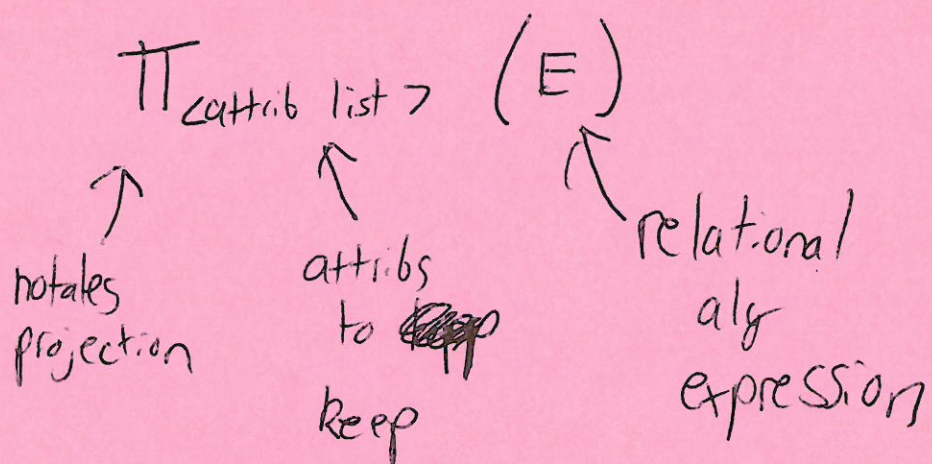 Π<attrib list> (E)
notates
projection
attribs
to
keep
relational
alg
expression